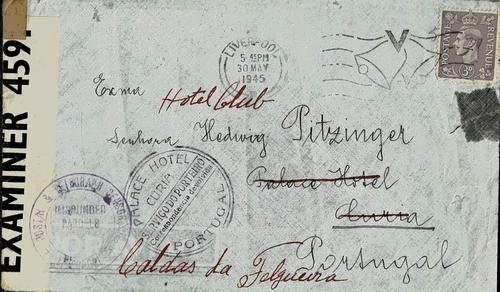 EXAMINER 459
LIVERPOOL
5 45 PM
30 MAY
1945
POSTAGE
REVENUE
3D
Exma
Hotel Club
Senhora Hedwig Pitzinger
Palace Hotel
Curia
Portugal
Caldas da Felgueira
PALACE HOTEL
CURIA
SERVIÇO DO PORTEIRO
Correspondencia devolvida
PORTUGAL